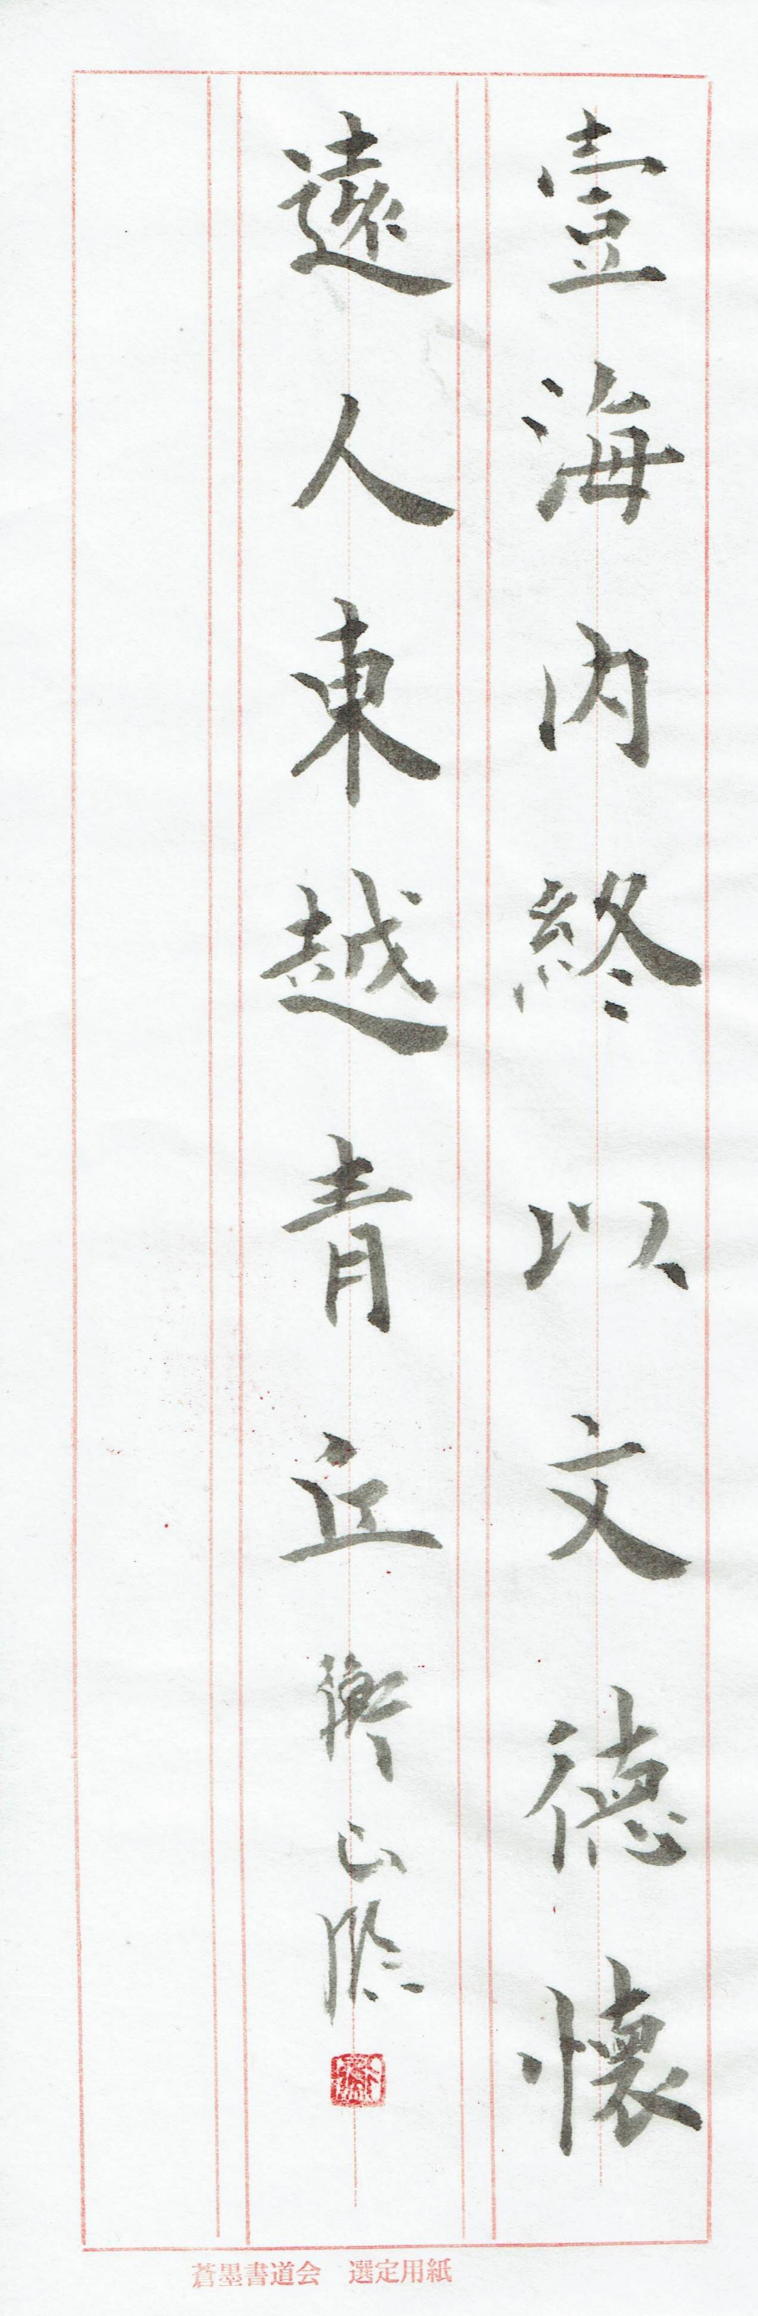 壹海内終以文德懷
遠人東越青丘衡山臨
蒼墨書道会　選定用紙